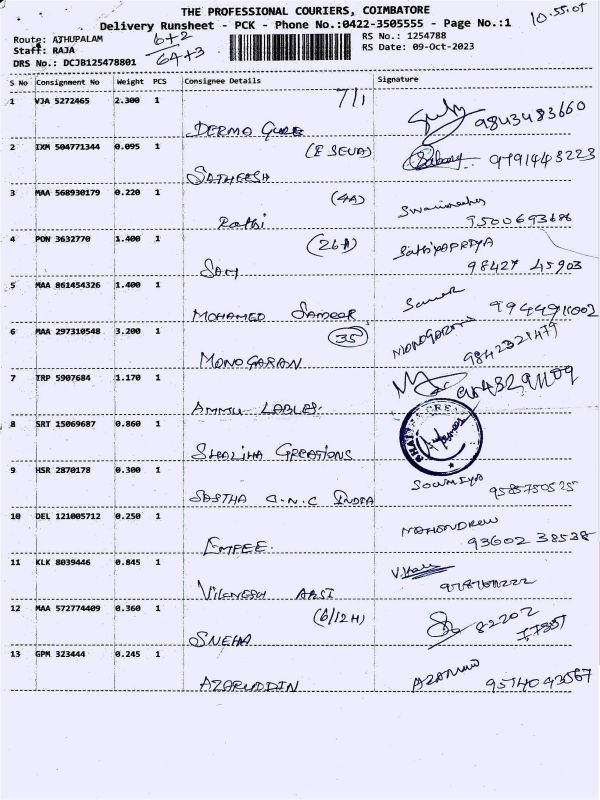 THE PROFESSIONAL COURIERS, COIMBATORE
Delivery Runsheet - PCK - Phone No.:0422-3505555 - Page No.:1
10.55.01
Route: ATHUPALAM
6+2
RS No.: 1254788
Staff: RAJA
6A+3
RS Date: 09-Oct-2023
DRS No.: DCJB125478801
S No Consignment No Weight PCS Consignee Details Signature
1 VJA 5272465 2.300 1 7/1
DERMA CURE 9843483660
2 IXM 504771344 0.095 1 (E SEVA)
SATHEESH 9791443223
3 MAA 568930179 0.220 1 (4A)
Rathi 9500693686
4 PON 3632770 1.400 1 (26A) SathiyaPRIYA
SAM 98427 45903
5 MAA 861454326 1.400 1
MOHAMED SAMEER 9944911002
6 MAA 297310548 3.200 1 (35) MONOGARAN
MONOGARAN 9842321479
7 TRP 5907684 1.170 1
AMMU LABLES.
8 SRT 15069687 0.860 1
SHALIHA CREATIONS
9 HSR 2870178 0.300 1 SOUMIYA
SASTHA C.N.C INDIA 9585750525
10 DEL 121005712 0.250 1
EMPEE. 93602 38538
11 KLK 8039446 0.845 1
VIGNESH ARSI
12 MAA 572774409 0.360 1 (6/12H) 82202
SNEHA
13 GPM 323444 0.245 1
AZARUDDIN 9514043567